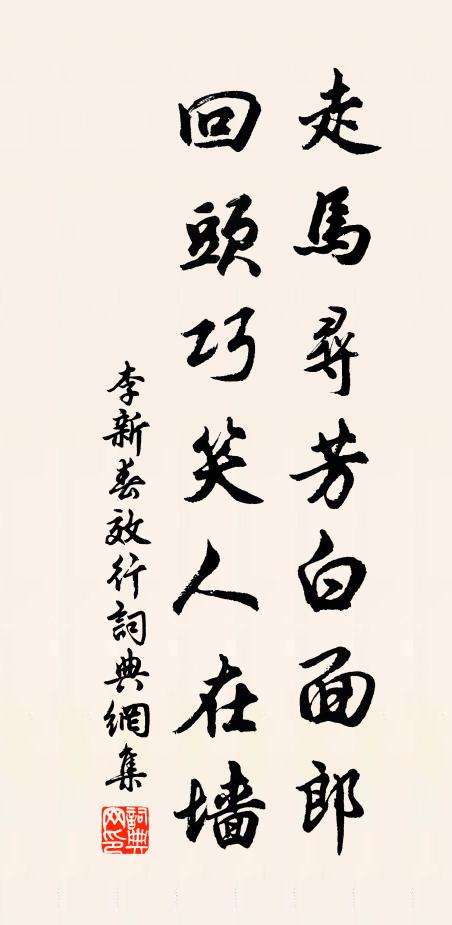 走馬尋芳白面郎
回頭巧笑人在墻
李新春效行詞典網集
詞典網印